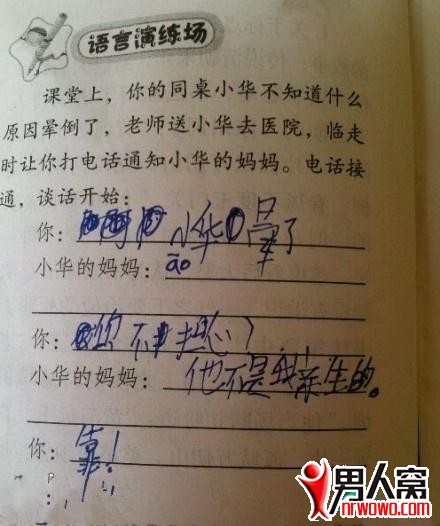 语言演练场
课堂上，你的同桌小华不知道什么
原因晕倒了，老师送小华去医院，临走
时让你打电话通知小华的妈妈。电话接
通，谈话开始：
你：小华晕了
小华的妈妈：āo
你：你不担心？
小华的妈妈：他不是我亲生的。
你：靠！
男人窝
nrwowo.com